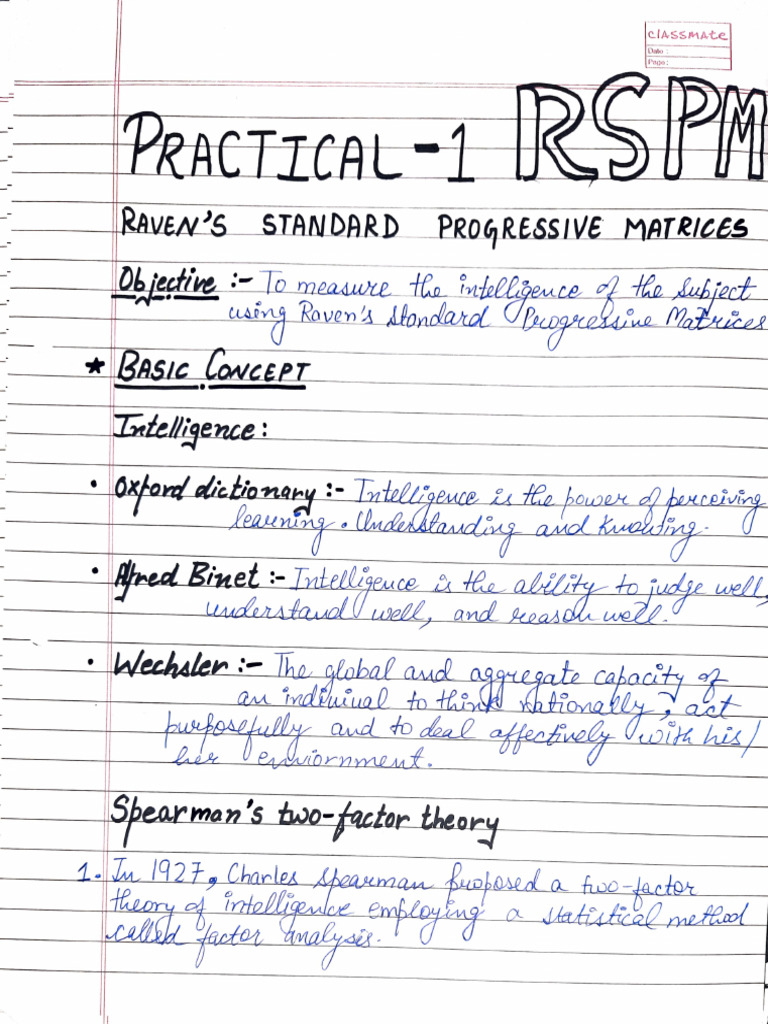 classmate
Date :
Page :
PRACTICAL-1 RSPM
RAVEN'S STANDARD PROGRESSIVE MATRICES
Objective :- To measure the intelligence of the subject
using Raven's standard Progressive Matrices
* BASIC CONCEPT
Intelligence :
• Oxford dictionary :- Intelligence is the power of perceiving
learning. Understanding and knowing.
• Alfred Binet :- Intelligence is the ability to judge well,
understand well, and reason well.
• Wechsler :- The global and aggregate capacity of
an indiviual to think rationally, act
purposefully and to deal affectively with his/
her enviornment.
Spearman's two-factor theory
1. In 1927, Charles Spearman proposed a two-factor
theory of intelligence employing a statistical method
called factor analysis.